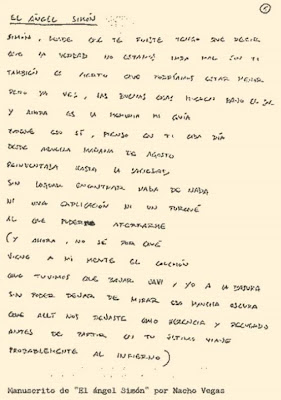 EL ÁNGEL SIMÓN
SIMÓN, DESDE QUE TE FUISTE TENGO QUE DECIR
QUE LA VERDAD NO ESTAMOS NADA MAL SIN TI
TAMBIÉN ES CIERTO QUE PODRÍAMOS ESTAR MEJOR
PERO YA VES, LAS BUENAS COSAS MUEREN BAJO EL SOL
Y AHORA ES LA MEMORIA MI GUÍA
PORQUE ESO SÍ, PIENSO EN TI CADA DÍA
DESDE AQUELLA MAÑANA DE AGOSTO
REINVENTADA HASTA LA SACIEDAD
SIN LOGRAR ENCONTRAR NADA DE NADA
NI UNA EXPLICACIÓN NI UN PORQUÉ
AL QUE PODER ATERRARME
(Y AHORA, NO SÉ POR QUÉ
VIENE A MI MENTE EL COLCHÓN
QUE TUVIMOS QUE BAJAR JAVI Y YO A LA BASURA
SIN PODER DEJAR DE MIRAR ESA MANCHA OSCURA
QUE ALLÍ NOS DEJASTE COMO HERENCIA Y RECUERDO
ANTES DE PARTIR EN TU ÚLTIMO VIAJE
PROBABLEMENTE AL INFIERNO)
Manuscrito de "El Ángel Simón" por Nacho Vegas